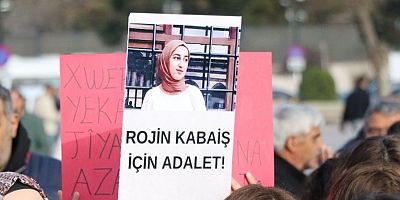 XWE
YEKA
JÎYA
AZA
ROJİN KABAİŞ
İÇİN ADALET!
NA